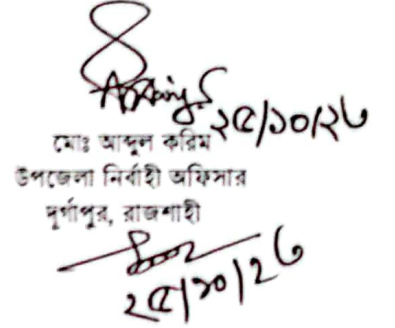 ২৫/১০/২৩
মোঃ আব্দুল করিম
উপজেলা নির্বাহী অফিসার
দুর্গাপুর, রাজশাহী
২৫/১০/২৩